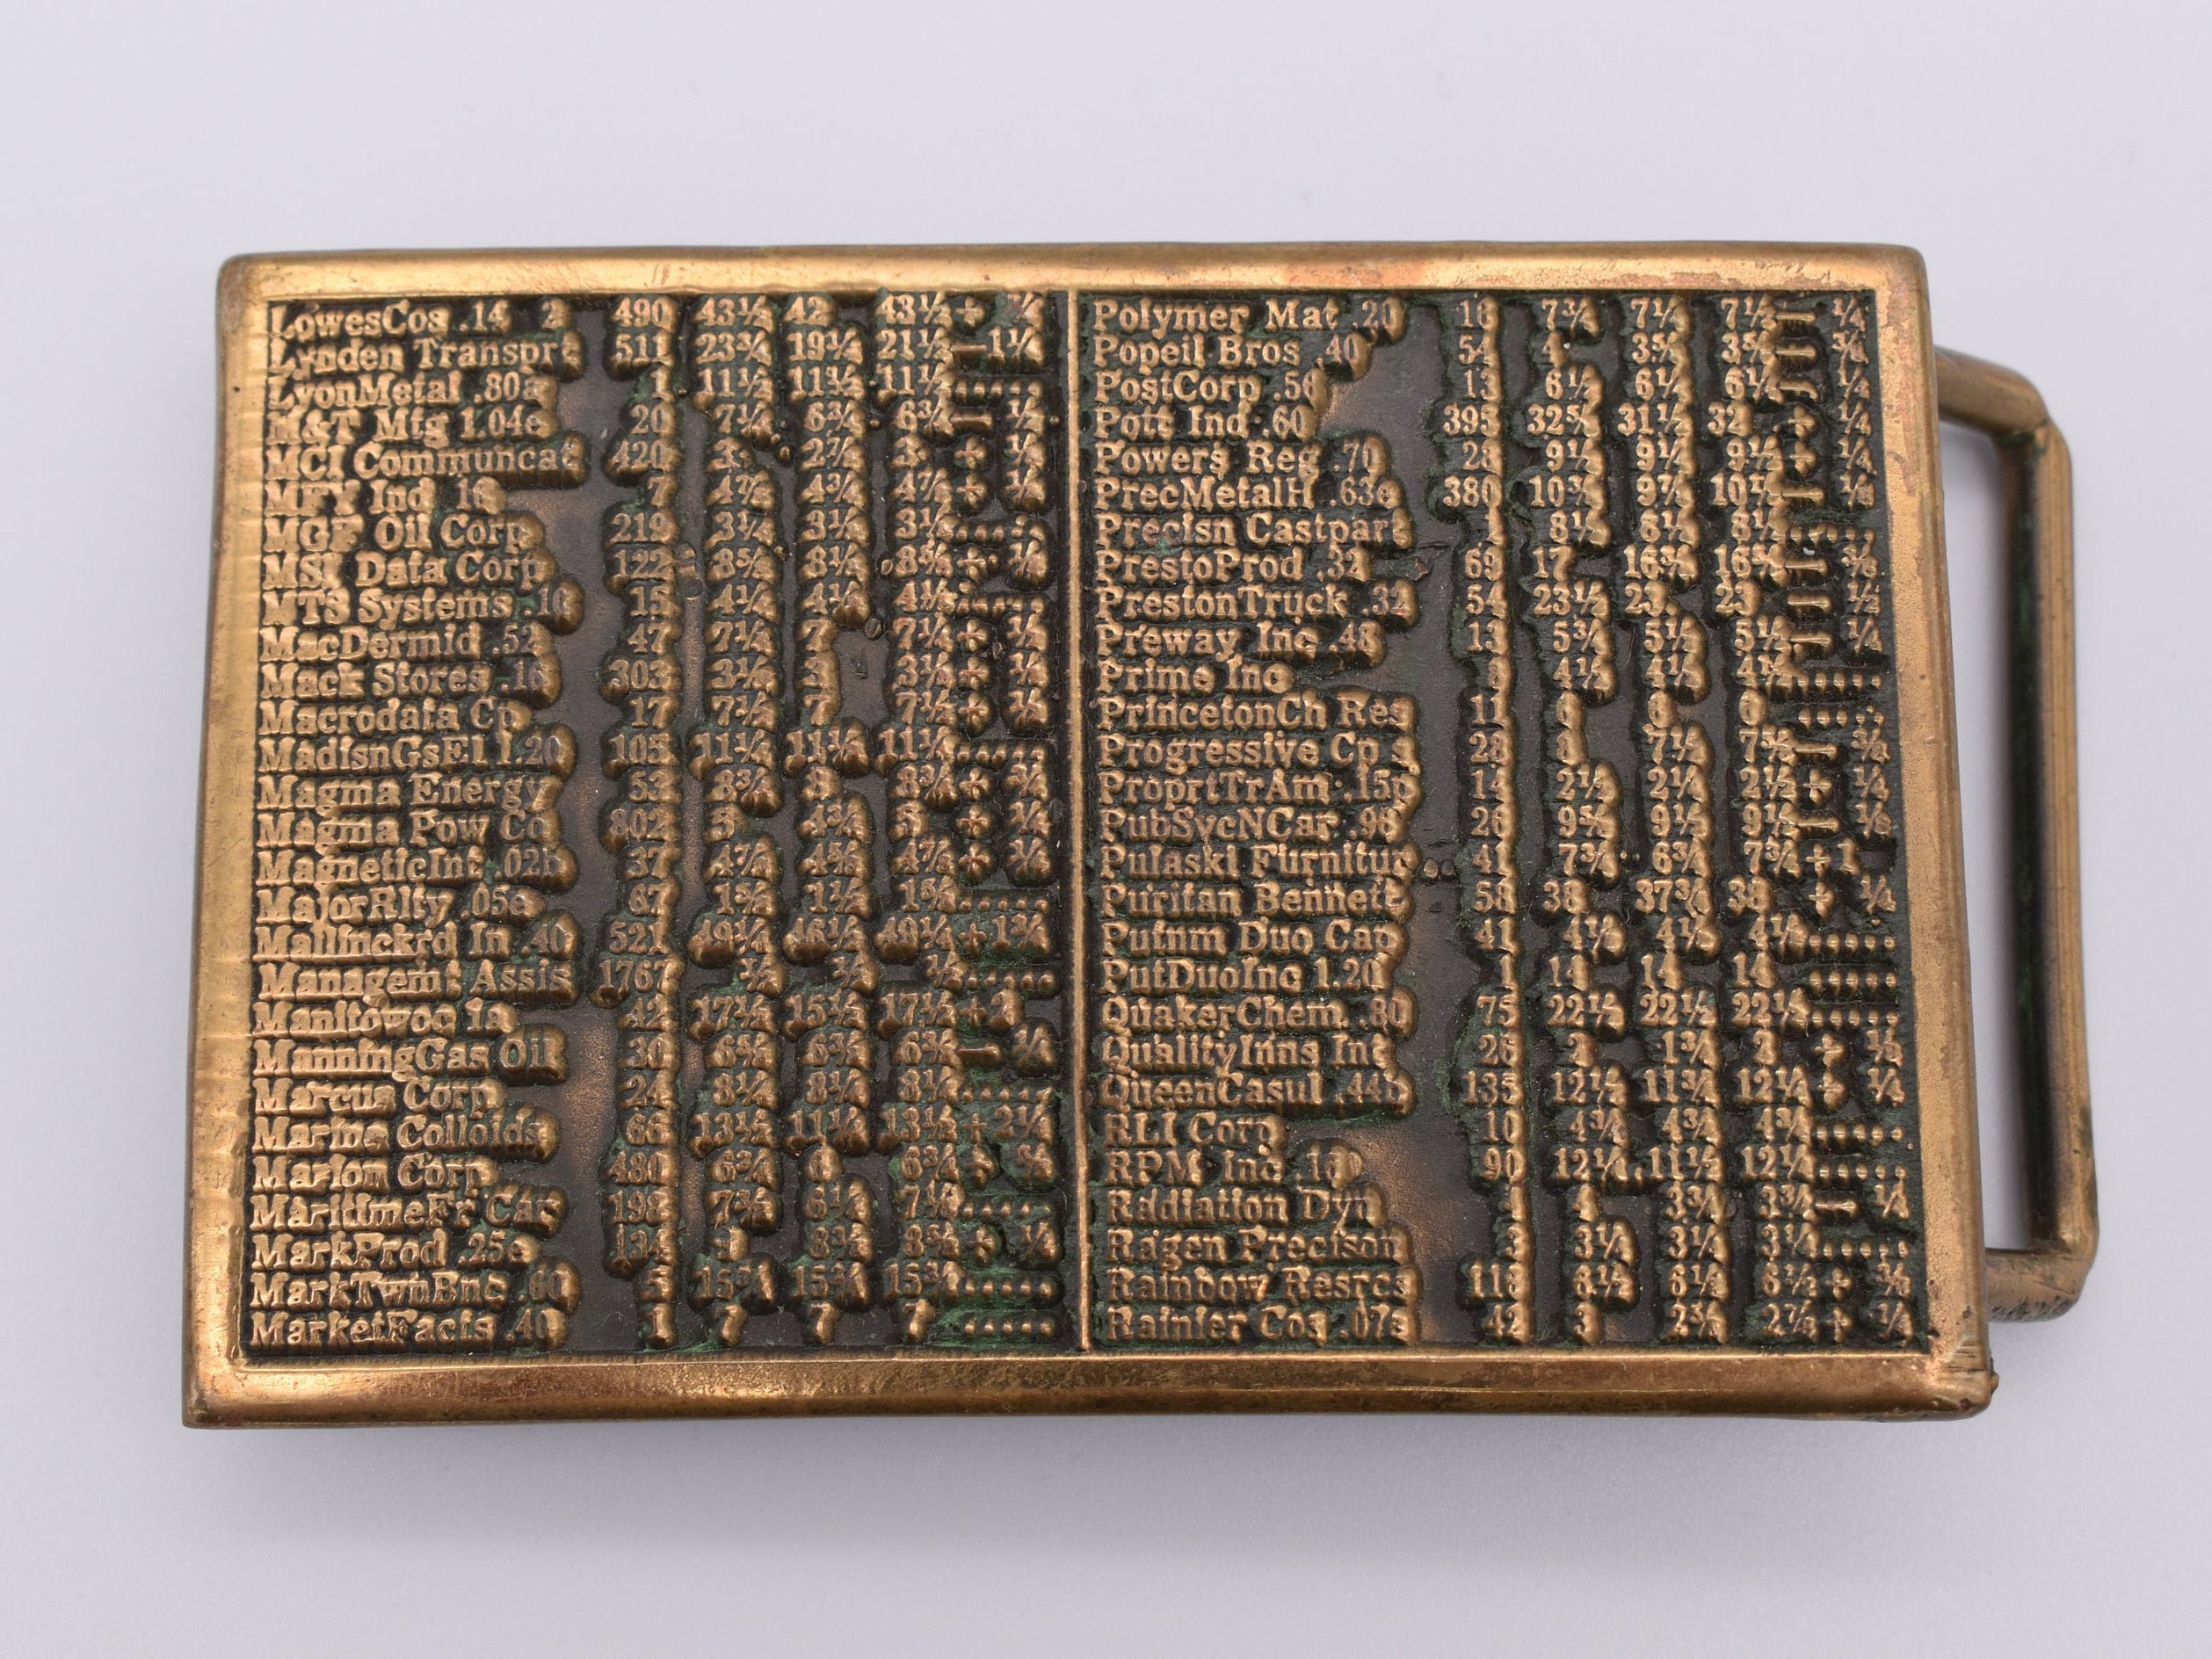 LowesCos .14 2 490 43½ 42 43½ +
Lynden Transprt 511 23¾ 19¼ 21½ - 1¼
LyonMetal .80a 1 11½ 11½ 11½ .....
M&T Mfg 1.04e 20 7¼ 6¾ 6¾ - ½
MCI Communcat 420 3 2⅞ 3 +
MFY Ind 7 4⅞ 4¾ 4⅞ +
MGF Oil Corp 219 3¼ 3¼ 3¼ .....
MSI Data Corp 122 8⅝ 8½ 8⅝ + ⅛
MTS Systems .10 15 .....
MacDermid .52 47 7½ 7 7½ + ½
Mack Stores .16 303 3 +
Macrodata Cp 17 7½ 7 7½ + ½
MadisnGsEl 1.20 105 .....
Magma Energy 53 8¾ 8 8¾ + ¾
Magma Pow Co 802 5 4¾ 5 + ¼
MagneticInt .02b 37 4⅞ 4⅝ 4⅞ +
MajorRlty .05e 67 1⅝ 1½ 1⅝ .....
Mallinckrd In .40 521 49¼ 46½ 49¼ + 1¾
Managemt Assis 1767 .....
Manitowoc 1a 42 17½ 15½ 17½ + 2
ManningGas Oil 30 6⅝ 6⅜ 6⅜ -
Marcus Corp 24 8¼ 8¼ 8¼ .....
Marine Colloids 66 13½ 11¼ 13½ + 2¼
Marion Corp 480 6¾ 6 6¾ +
MaritimeFr Car 198 .....
MarkProd .25e 134 9 8⅜ 8⅝ +
MarkTwnBnc .60 5 15¾ 15¾ 15¾ .....
MarketFacts .40 1 7 7 7 .....
Polymer Mat .20 7¾ 7¼ 7½ - ¼
Popeil Bros .40 54 4 3⅝ 3⅝ - ⅜
PostCorp .50 13 6½ 6¼ 6¼ - ¼
Pott Ind .60 395 31½ 32 + ¼
Powers Reg .70 9½ 9¼ 9½ + ¼
PrecMetalH .63e 380 -
Precisn Castpart 1 .....
PrestoProd .32 69 17 16⅝ 16⅝ - ⅜
PrestonTruck .32 54 23½ 23 23 - ½
Preway Inc .48 13 5¾ 5½ 5½ - ¼
Prime Inc .....
PrincetonCh Res 11 6 6 6 .....
Progressive Cp 28 8 -
ProprtTrAm .15p 14 2½ 2¼ 2½ + ¼
PubSvcNCar .96 26 9⅝ 9½ 9½ - ⅛
Pulaski Furnitur 41 7¾ 6¾ 7¾ + 1
Puritan Bennett 58 38 37¾ 38 + ¼
Putnm Duo Cap 41 4⅛ 4⅛ 4⅛ .....
PutDuoInc 1.20 1 14 14 14 .....
QuakerChem .80 75 22½ 22½ 22½ .....
QualityInns Int 2 1¾ 2 + ¼
QueenCasul .44b 135 12¼ 11¾ 12¼ + ¼
RLI Corp 10 4¾ 4¾ 4¾ .....
RPM Inc 90 11½ .....
Radiation Dyn 4 3¾ 3¾ - ¼
Ragen Precison 3 3¼ 3¼ 3¼ .....
Rainbow Resrcs 118 +
Rainier Cos .07e 42 3 2⅝ 2⅞ + ¼